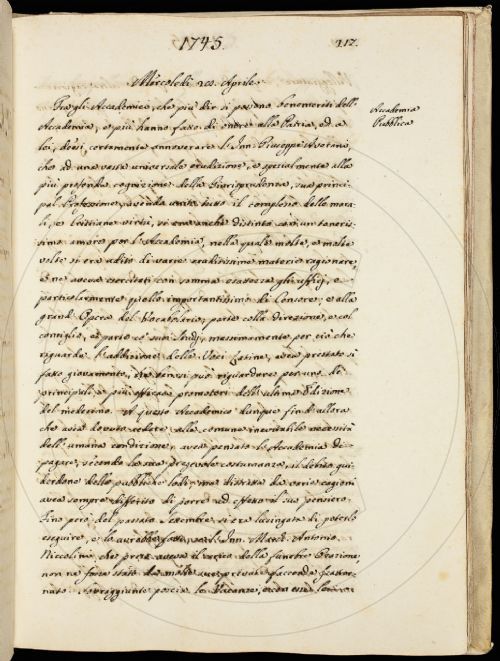 1745.
217.
Mercoledì 28. Aprile.
Accademia
Pubblica
Fra gli Accademici, che più dir si possono benemeriti dell'
Accademia, e più hanno fatto di onore alla Patria, ed a
lei, deesi certamente annoverare l'Inn. Giuseppe Averani,
che ad una vasta universale erudizione, e spezialmente alla
più profonda cognizione della Giurisprudenza, sua princi-
pal Professione, avendo unito tutto il complesso delle mora-
li, e Cristiane virtù, si era anche distinto con un teneris-
simo amore per l'Accademia, nella quale molte, e molte
volte si era udito di varie eruditissime materie ragionare,
e ne aveva esercitati con somma esattezza gli ufizj, e
particolarmente quello importantissimo di Censore, e alla
grand'Opera del Vocabolario, parte colla direzione, e col
consiglio, e parte co' suoi studj, massimamente per ciò che
riguarda l'addizione delle Voci Latine, avea prestato sì
fatto giovamento, che ben si può riguardare per uno de'
principali, e più efficaci promotori dell'ultima Edizione
del medesimo. A questo Accademico dunque fin d'allora
che avea dovuto cedere alla comune inevitabile necessità
dell'umana condizione, avea pensato l'Accademia di
pagare, secondo la sua lodevole costumanza, il debito gui-
derdone della pubblica lode, ma distratta da varie cagioni
avea sempre differito di porre ad effetto il suo pensiero.
Fino però del passato Settembre si era lusingata di poterlo
eseguire, e lo avrebbe fatto, se l'Inn. March. Antonio
Niccolini, che preso aveva il carico della funebre Orazione,
non ne fosse stato da molte sue private faccende frastor-
nato. Sopraggiunte poscia le Vacanze, e con esse